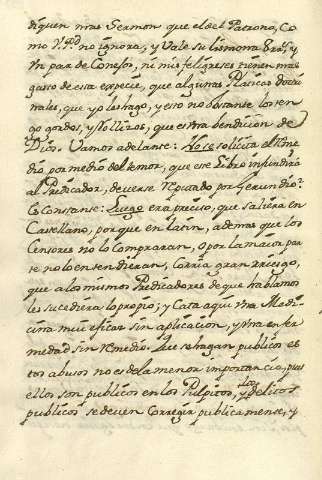 diquen mas Sermon que el del Patrono, Co
mo V. Pd. no ignora, y Vale su limosna
Un par de Conejos, ni mis feligreses tienen mas
gasto de esta especie, que algunas Platicas doctri
nales, que yo les hago, y eso no obstante los ten
go gordos, y rollizos, que es una bendicion de
Dios. Vamos adelante: No se solicita el Rme
dio por medio del temor, que ese Libro infundirá
al Predicador, de verse reputado por Gerundio:
Es Constante: Luego era preciso, que saliera en
Castellano, porque en latin, ademas que los
Censores no lo Compraran, o por la maior par
te no lo entendieran, Corria gran riesgo,
que a los mismos Predicadores de que hablamos
les sucediera lo propio; y Cata aqui Una Medi
cina mui eficaz sin aplicacion, y Una enfer
medad sin Remedio. Que se hagan publicos es
tos abusos no es de la menor importancia, pues
ellos son publicos en los Pulpitos, y los delitos
publicos se deven Corregir publicamente, y